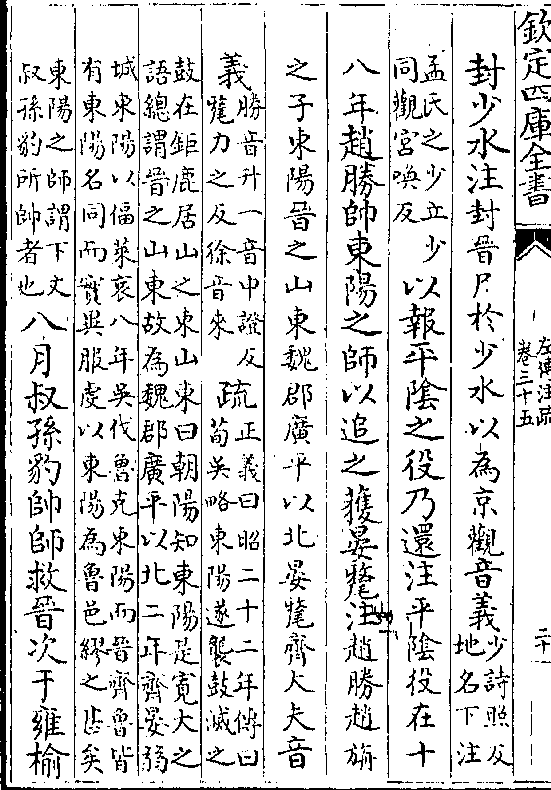 欽定四庫全書
左傳注疏
卷三十五
二十一
封少水注封晉尸於少水以為京觀音義少詩照反
地名下注
孟氏之少立少
同觀宫喚反
以報平陰之役乃還注平陰役在十
八年趙勝帥東陽之師以追之獲晏氂注趙勝趙旃
之子東陽晉之山東魏郡廣平以北晏氂齊大夫音
義勝音升一音中證反
氂力之反徐音來
疏正義曰昭二十二年傳曰
荀吳略東陽遂襲鼓滅之
鼓在鉅鹿居山之東山東曰朝陽知東陽是寛大之
語總謂晉之山東故為魏郡廣平以北二年齊晏弱
城東陽以偪萊哀八年吳伐魯克東陽而晉齊魯皆
有東陽名同而實異服虔以東陽為魯邑繆之甚矣
東陽之師謂下文
叔孫豹所帥者也
八月叔孫豹帥師救晉次于雍榆